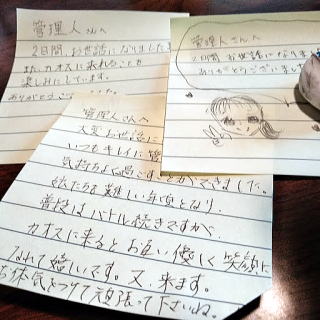 管理人さんへ
2日間、お世話になりました
また、カオスに来れることも
楽しみにしています。
ありがとうござ
管理人さんへ
2日間 お世話になりま
ありがとうございまし
管理人さんへ
大変お世話に
いつもキレイに
気持ちよく過ごすことができました。
娘たちも難しい年頃となり、
普段はバトル続きですが、
カオスに来るとお互い優しく笑顔に
なれて嬉しいです。又、来ます。
体気をつけて頑張って下さいね。